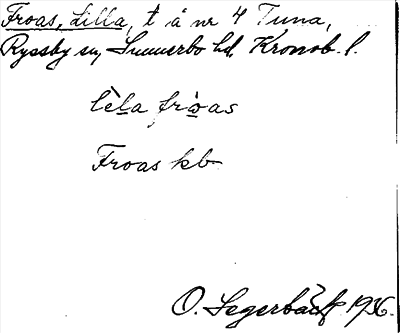 Froas, Lilla, t å nr 4 Tuna,
Ryssby sn, Sunnerbo hd, Kronob. l.
lèla fròas
Froas kb
O. Segerbäck 1936.